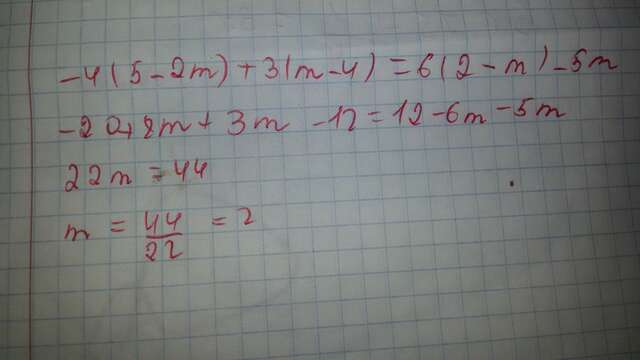 -4(5-2m)+3(m-4)=6(2-m)-5m
-20+8m+3m-12=12-6m-5m
22m=44
m = \frac{44}{22} = 2